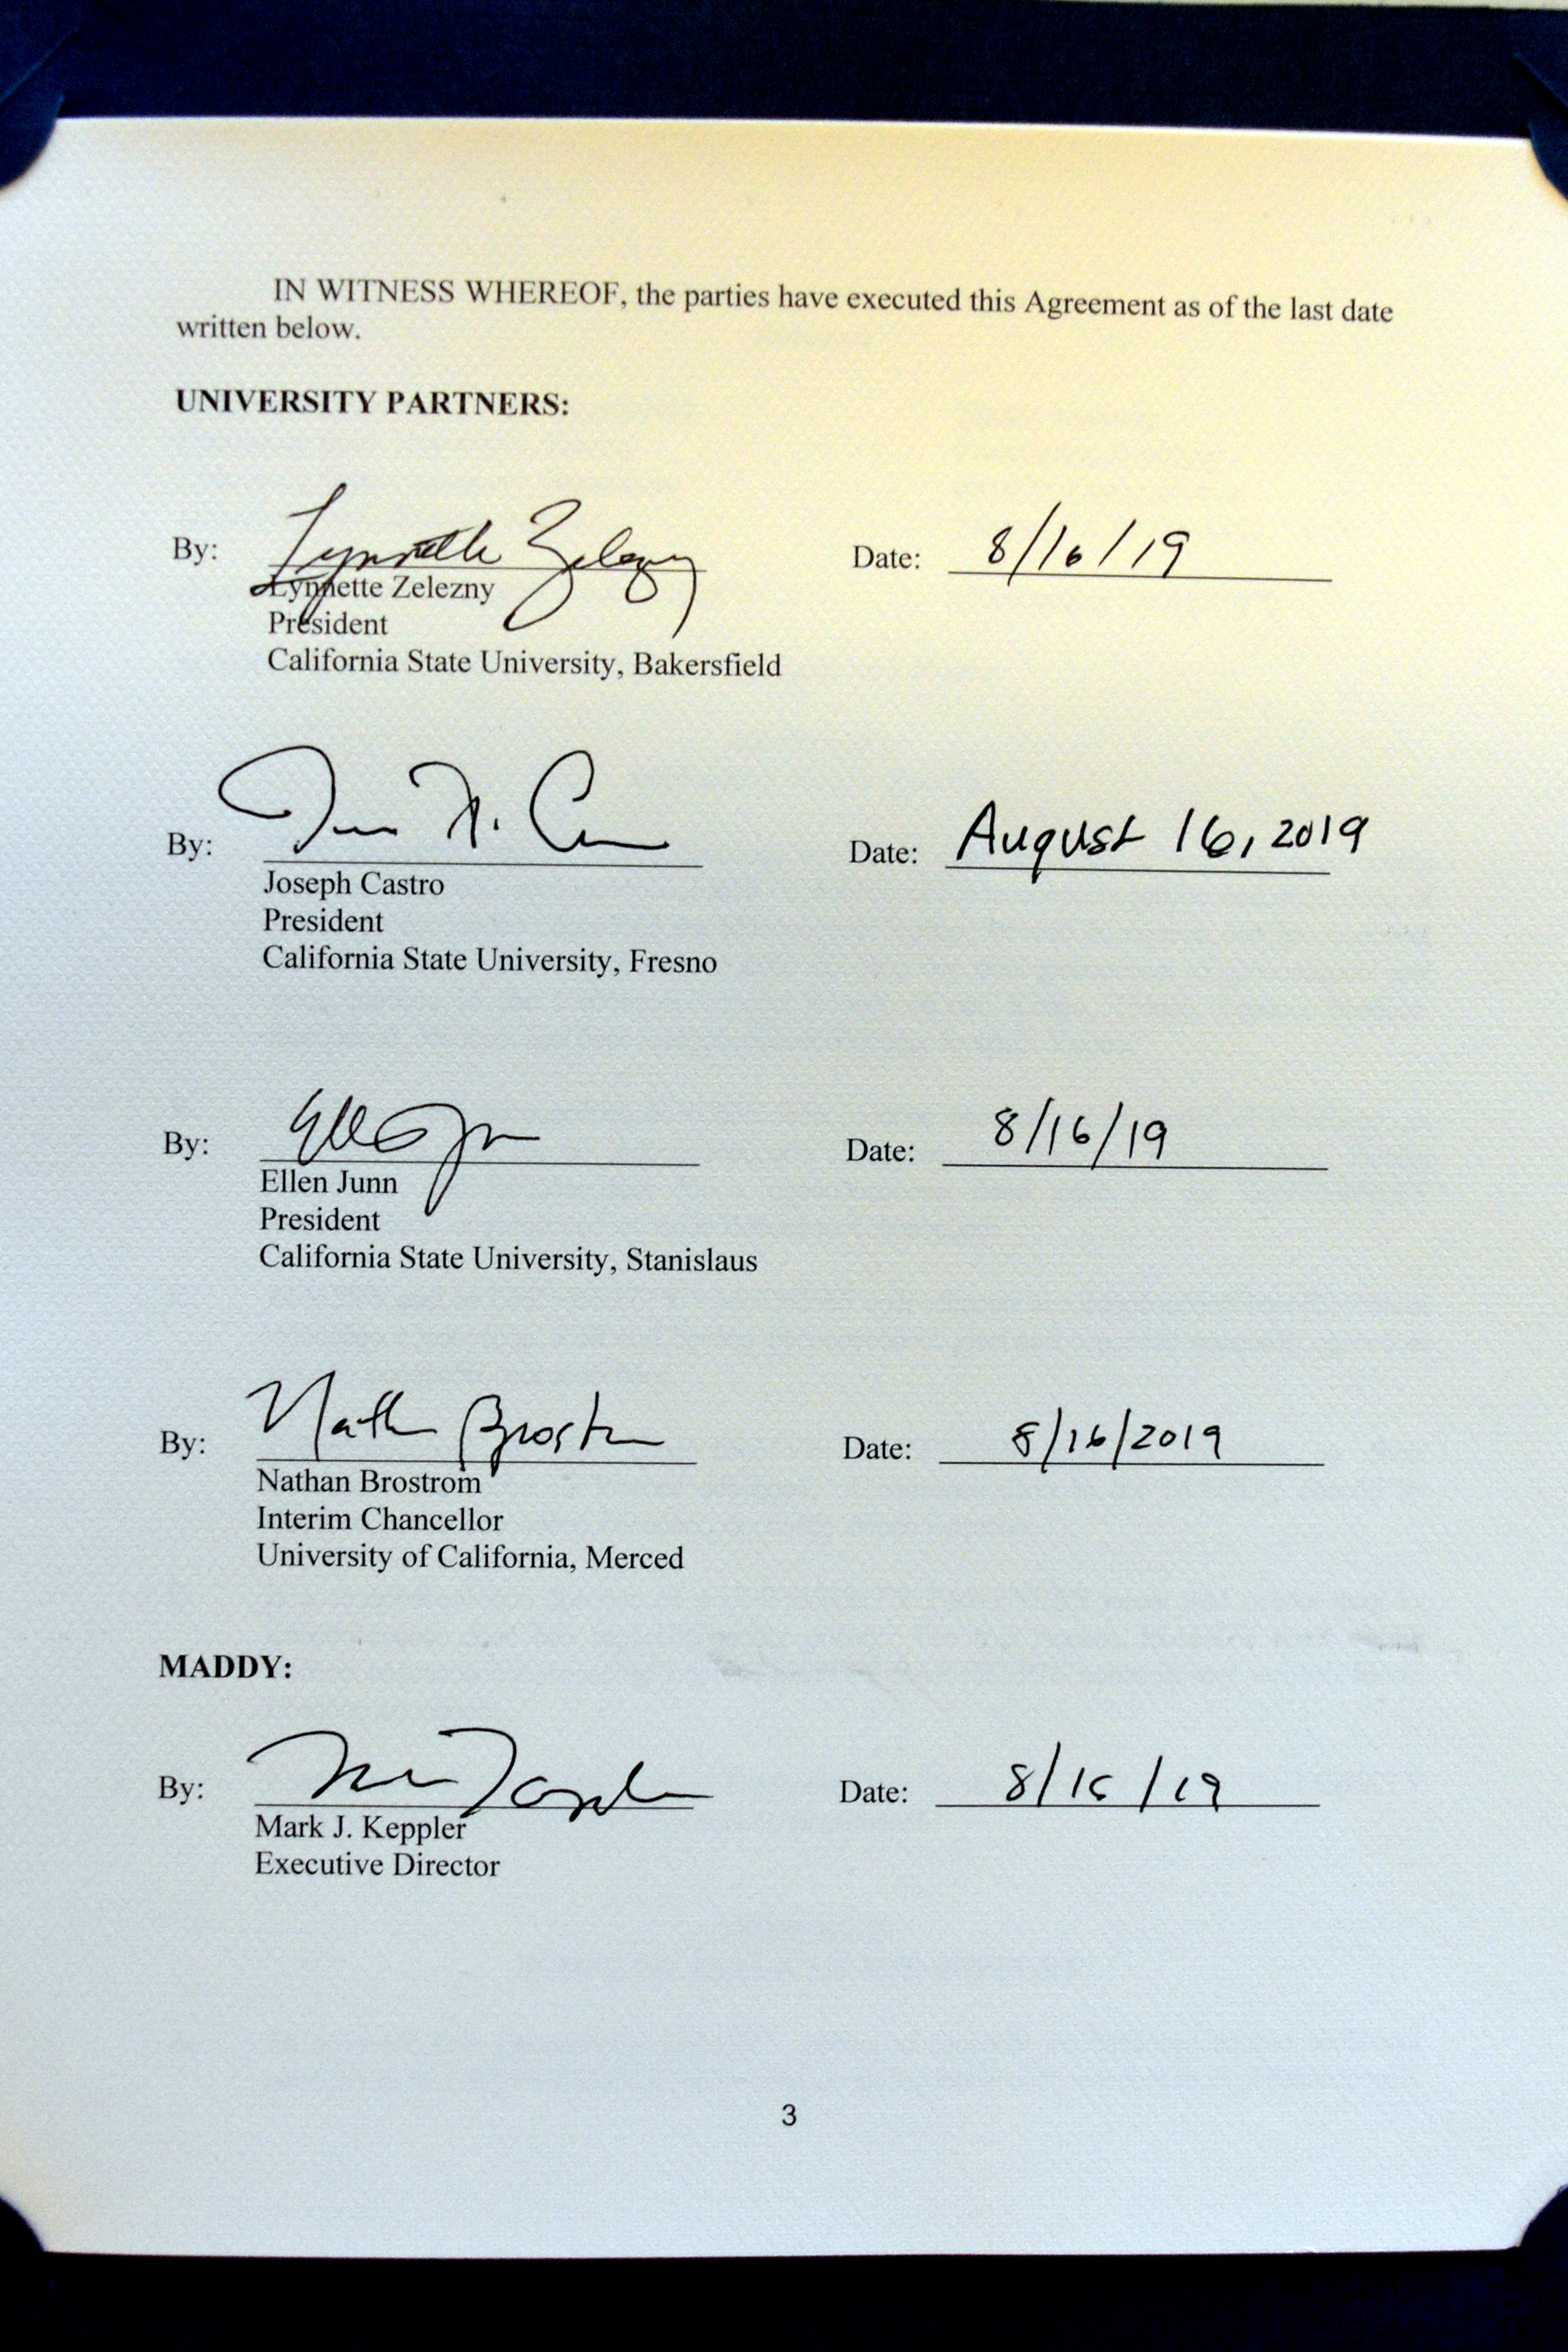 IN WITNESS WHEREOF, the parties have executed this Agreement as of the last date
written below.
UNIVERSITY PARTNERS:
By: Lynnette Zelezny Date: 8/16/19
Lynnette Zelezny
President
California State University, Bakersfield
By: Date: August 16, 2019
Joseph Castro
President
California State University, Fresno
By: Date: 8/16/19
Ellen Junn
President
California State University, Stanislaus
By: Date: 8/16/2019
Nathan Brostrom
Interim Chancellor
University of California, Merced
MADDY:
By: Date: 8/16/19
Mark J. Keppler
Executive Director
3